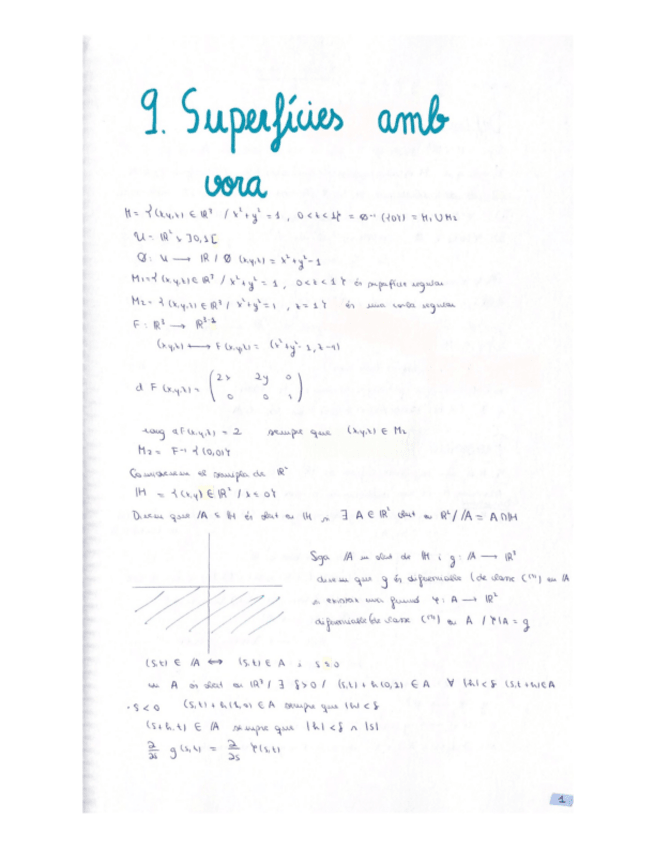 9. Superfícies amb
vora
M = {(x,y,z) ∈ ℝ³ / x²+y² = 1, 0<z≤1} = Ø⁻¹({0}) = M₁∪M₂
U = ℝ² x ]0,1[
Ø: U → ℝ / Ø (x,y,z) = x²+y²-1
M₁={(x,y,z) ∈ ℝ³ / x²+y² = 1, 0<z<1} és superfície regular
M₂= {(x,y,z) ∈ ℝ³ / x²+y²=1, z=1} és una corba regular
F: ℝ³ → ℝ³⁻¹
(x,y,z) ⟼ F(x,y,z) = (x²+y²-1, z-1)
d F(x,y,z) = (2x 2y 0
0 0 1)
rang dF(x,y,z) = 2 sempre que (x,y,z) ∈ M₂
M₂ = F⁻¹ {(0,0)}
el de ℝ²
ℍ = {(x,y) ∈ ℝ² / x≤0}
Direm que /A ⊆ ℍ és obert en ℍ si ∃ A ∈ ℝ² obert en ℝ² / /A = A∩ℍ
Siga /A un obert de ℍ i g: /A → ℝ³
direm que g és diferenciable (de classe C⁽ᵐ⁾) en /A
si existeix una funció φ: A → ℝ³
diferenciable (de classe C⁽ᵐ⁾) en A / φ|A = g
(s,t) ∈ /A ⟷ (s,t) ∈ A i s≤0
A és obert en ℝ² / ∃ δ>0 / (s,t)+h(0,1) ∈ A ∀ |h|<δ (s,t+h)∈A
· s<0 (s,t)+h(1,0) ∈ A sempre que |h|<δ
(s+h,t) ∈ /A sempre que |h|<δ ∧ |s|
∂/∂s g(s,t) = ∂/∂s φ(s,t)
1